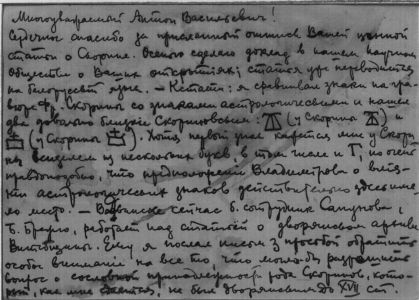 Многоуважаемый Антон Васильевич!
Сердечное спасибо за присланный оттиск Вашей ценной
статьи о Скорине. Осенью сделаю доклад в нашем научном
обществе о Ваших открытиях; статья уже переводится
на белорусский язык. — Кстати: я сравнивал знаки на гра-
вюре Скорины со знаками астрологическими и нашел
два довольно близкие Скориновским: (у Скорины ) и
(у Скорины ). Хотя первый знак кажется мне у Скори-
ны вензелем из нескольких букв, в том числе и Т, но очень
правдоподобно, что предположение Владимирова о влия-
нии астрологических знаков действительно здесь име-
ло место. — В сейчас б. сотрудник Сапунова,
Б. Брежго, работает над статьей о дворянском архиве
Витебщины. Ему я послал письмо с просьбой обратить
особое внимание на все то, что могло бы разрешить
вопрос о сословной принадлежности рода Скоринов, кото-
рый, как мне кажется, не был дворянским до XVII ст.